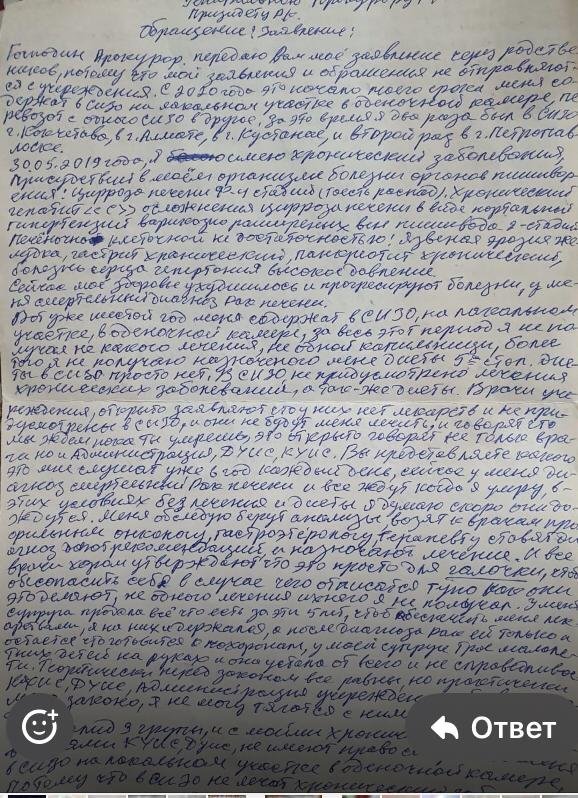 Президету РК.
Обращение! Заявление!
Господин Прокурор. передаю Вам моё заявление через родстве
ников, потому что мои заявления и обращения не отправляют-
ся с учреждения. С 2020 года это начало моего срока меня со-
держат в сизо на локальном участке в оденочной камере, пе
ревозят с одного сизо в другое, за это время я два раза был в сизо
г. Кокчетава, в г. Алмате, в г. Кустанае, и второй раз в г. Петропав
ловске.
30.05.2019 года, я имею хронический заболевания,
в моём организме болезни органов пишивор-
ения! Цирроза печени (тоесть распад). Хронический
гепатит <<С>> осложнения цирроза печени в виде портальной
гипертензии варикозно расширенных вен пишивода 2-стадии
Печёночно клеточной не достаточностью! Язвеная эрозия же
лудка, гастрит хронический, панкриотит хронический,
болезнь серца гипертония высокое довление.
Сейчас моё здоровье ухудшилось и прогресируют болезни, у ме
ня смертельный диагноз Рак печени.
Вот уже шестой год меня содержат в СИЗО, на локальном
участке, в оденочной камере, за весь этот период я не по
лучал не какого лечения, не одной капильницы, более
того я не получаю назначеного мене диеты 5 стол, дие-
ты в СИЗО просто нет, В СИЗО не придусмотрено лечения
хронических заболеваний, а так-же диеты. Врачи учи
реждения, открыто заявляют что у них нет лекарств и не при-
дусмотрены в СИЗО, и они не будут меня лечить, и говорят что
мы ждём пока ты умрешь, это открыто говорят не только вра-
чи но и Администрация, ДУИС, КУИС. Вы представляете какого
это мне слушать уже в год каждый день, сейчас у меня ди-
агноз смертельный Рак печени и все ждут когда я умру, в-
этих условиях без лечения и диеты я думаю скоро они до-
ждутся. Меня обследую берут анализы, возят к врачам про
фильным онкологу, гастроэтерологу, терапевту ставят ди
агноз дают рекомендации, и назначают лечение. И все
врачи хором утверждают что это просто для галочки, чтоб
обесопасить себя в случае чего отписатся тупо как они
это делают, не одного лечения я не получал. У меня
супруга продала всё что есть за эти 5 лет, чтоб обеспечить меня лек-
арствами, я на них и держался, а после диагноза Рак ей только и
остаётся что готовится к похоронам, у моей супруги трое малоле-
тних детей на руках и она устала от всего и не справедливос
ти. Теоритически перед законом все равны, но практически
КУИС, ДУИС, Администрация учережден
законо, я не могу тягатся с ним
3 группы, и с моими хронич
КУИС, ДУИС, не имеют право с
в сизо на локальном участке в оденочной камере,
Потому что в СИЗО не лечат хронический
Ответ